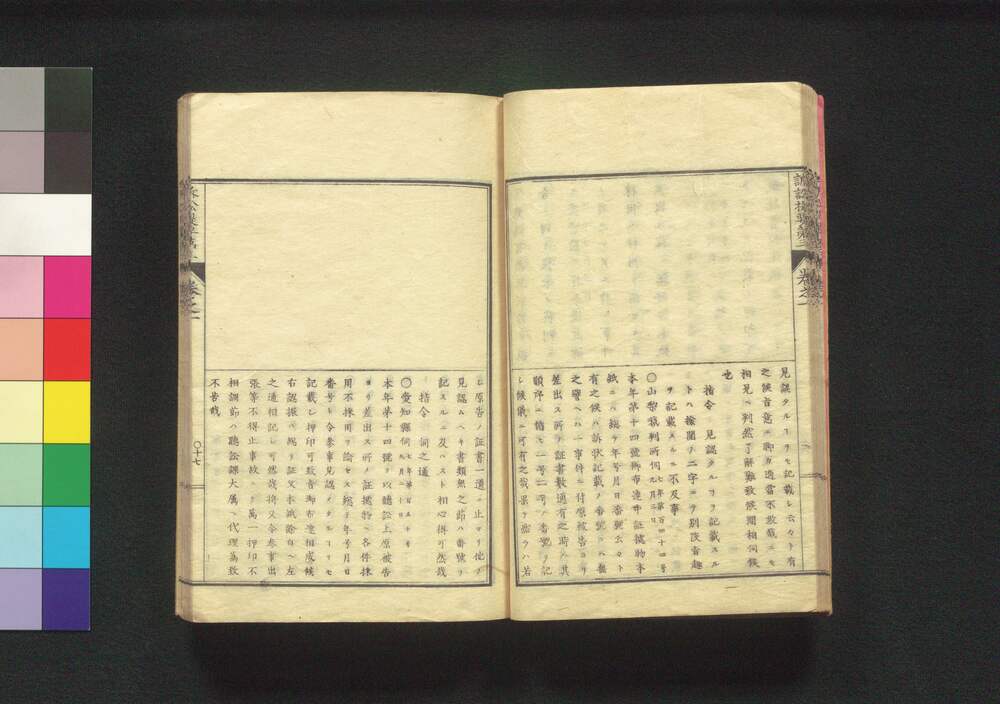 見認タルコヲモ記載シ云々ヲ有
之候旨意ニ聊有適當不致哉ニモ
相見ヘ判然了解難致候間相伺候
也
指令 見認タルコヲ記載スル
トハ檢閲ノ二字コヲ別段旨趣
ヲ記載スルニ不及事
〇山梨縣判所伺 七年第百四十四号 九月二日
本年第十四號御布達中証據物本
紙ニハ総テ年号月日番號云々ト
有之候ハ訴状記載ノ番號
之譬ヘハ一事件ニ付原被告ヨリ
差出ス所ノ証書數通有之時ハ其
順序ニ循ヒ一号二号ノ番號ヲ記
シ候儀ニ可有之哉果テ然ラハ若
シ原告ノ証書一通ニ止マリ他ノ
見認ムヘキ書類無之節ハ番號ヲ
記スルニ及ハスト相心得可然哉
指令 伺之通
〇愛知縣伺 七年第百五十号 九月二十日
本年第十四號ヲ以聽訟上原被告
ヨリ差出ス所ノ証據物ヘ各件採
用不採用ヲ論セス総テ年号月日
番号モ令参事見認メタルコヲモ
記載シ押印可致旨御布達相成候
右認振ハ
之通相記シ可然哉將又令参事出
張等不得止事故ニヨリ萬一押印不
相調節ハ聽訟課大属ヘ代理為致
不苦哉
〇十七